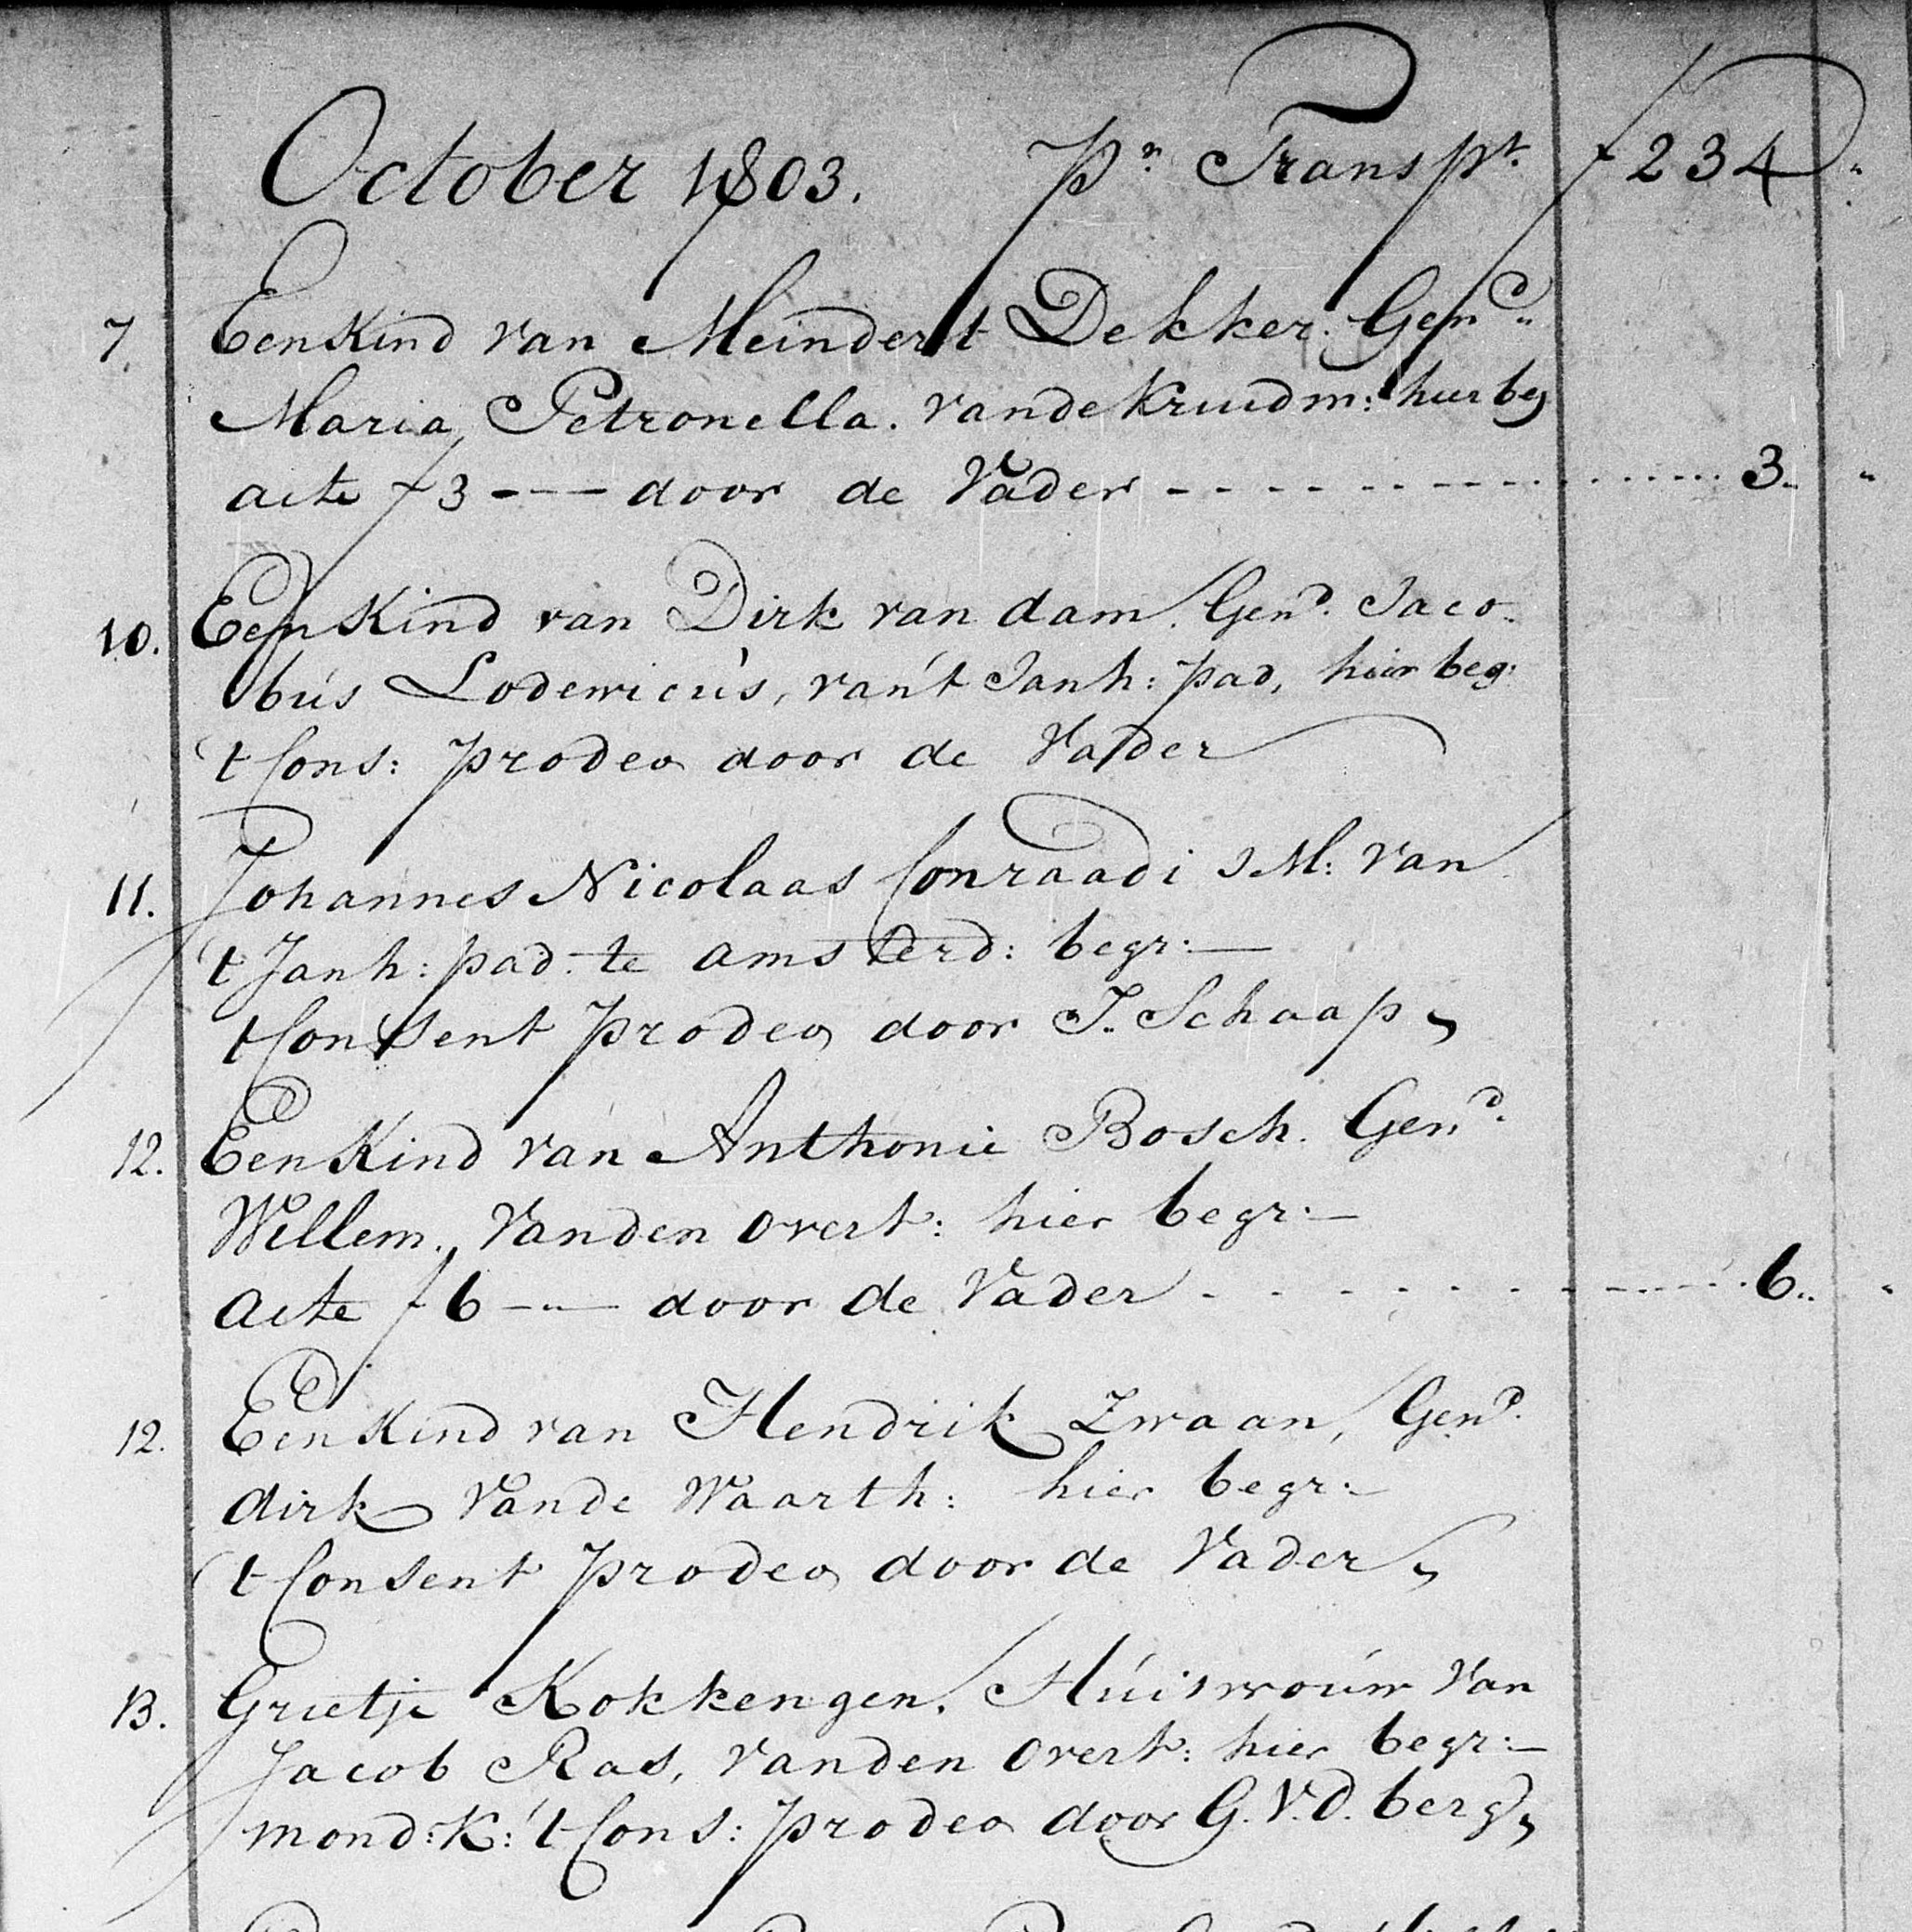 October 1803. Pr. Transpt. ƒ 234 "
7 Een Kind van Meindert Dekker. Gend.
Maria Petronella. vande Kruidm: hier beg
acte ƒ 3 --- door de Vader - - - - - - - - - - 3. "
10. Een Kind van Dirk van dam. Gend. Jaco-
bus Lodewicus, van 't Janh: pad, hier beg:
't Cons: prodeo door de Vader
11. Johannes Nicolaas Conraadi JM: van
't Janh: pad. te amsterd: begr:—
't Consent prodeo door J. Schaap,
12. Een Kind van Anthonie Bosch. Gend.
Willem. Vanden Overt: hier begr:—
acte ƒ 6 -"- door de Vader - - - - - - - - - - 6.. "
12. Een Kind van Hendrik Zwaan, Gend.
dirk Vande Waarth: hier begr:—
't Consent prodeo door de Vader,
13. Grietje Kokkengen. Huisvrouw Van
Jacob Ras, Vanden Overt: hier begr:—
mond: K: 't Cons: prodeo door G. V. D. berg,